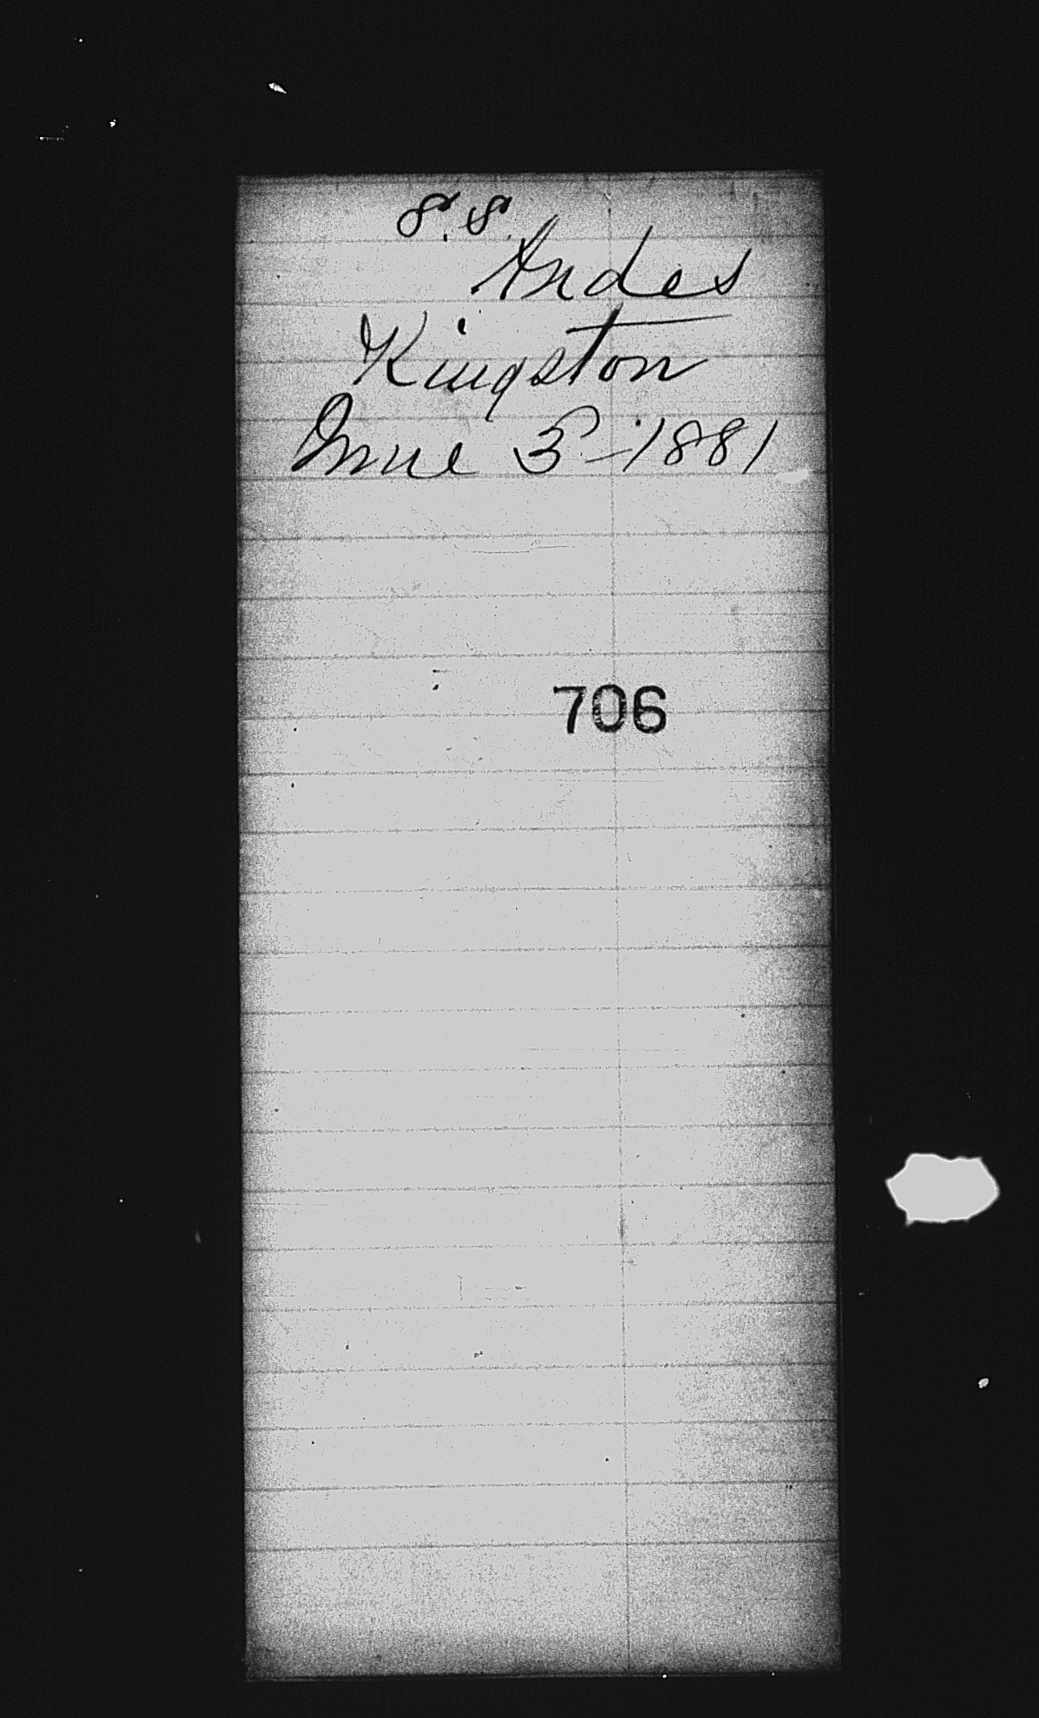 S.S.
Andes
Kingston
June 3-1881
706